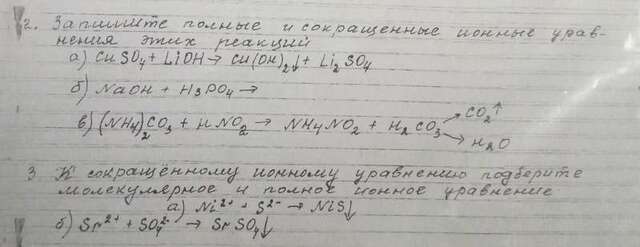 2. Запишите полные и сокращенные ионные урав-
нения этих реакций
а) CuSO₄ + LiOH → Cu(OH)₂↓ + Li₂SO₄
б) NaOH + H₃PO₄ →
в) (NH₄)₂CO₃ + HNO₂ → NH₄NO₂ + H₂CO₃ → CO₂↑
→ H₂O
3 К сокращённому ионному уравнению подберите
молекулярное и полное ионное уравнение
а) Ni²⁺ + S²⁻ → NiS↓
б) Sr²⁺ + SO₄²⁻ → SrSO₄↓